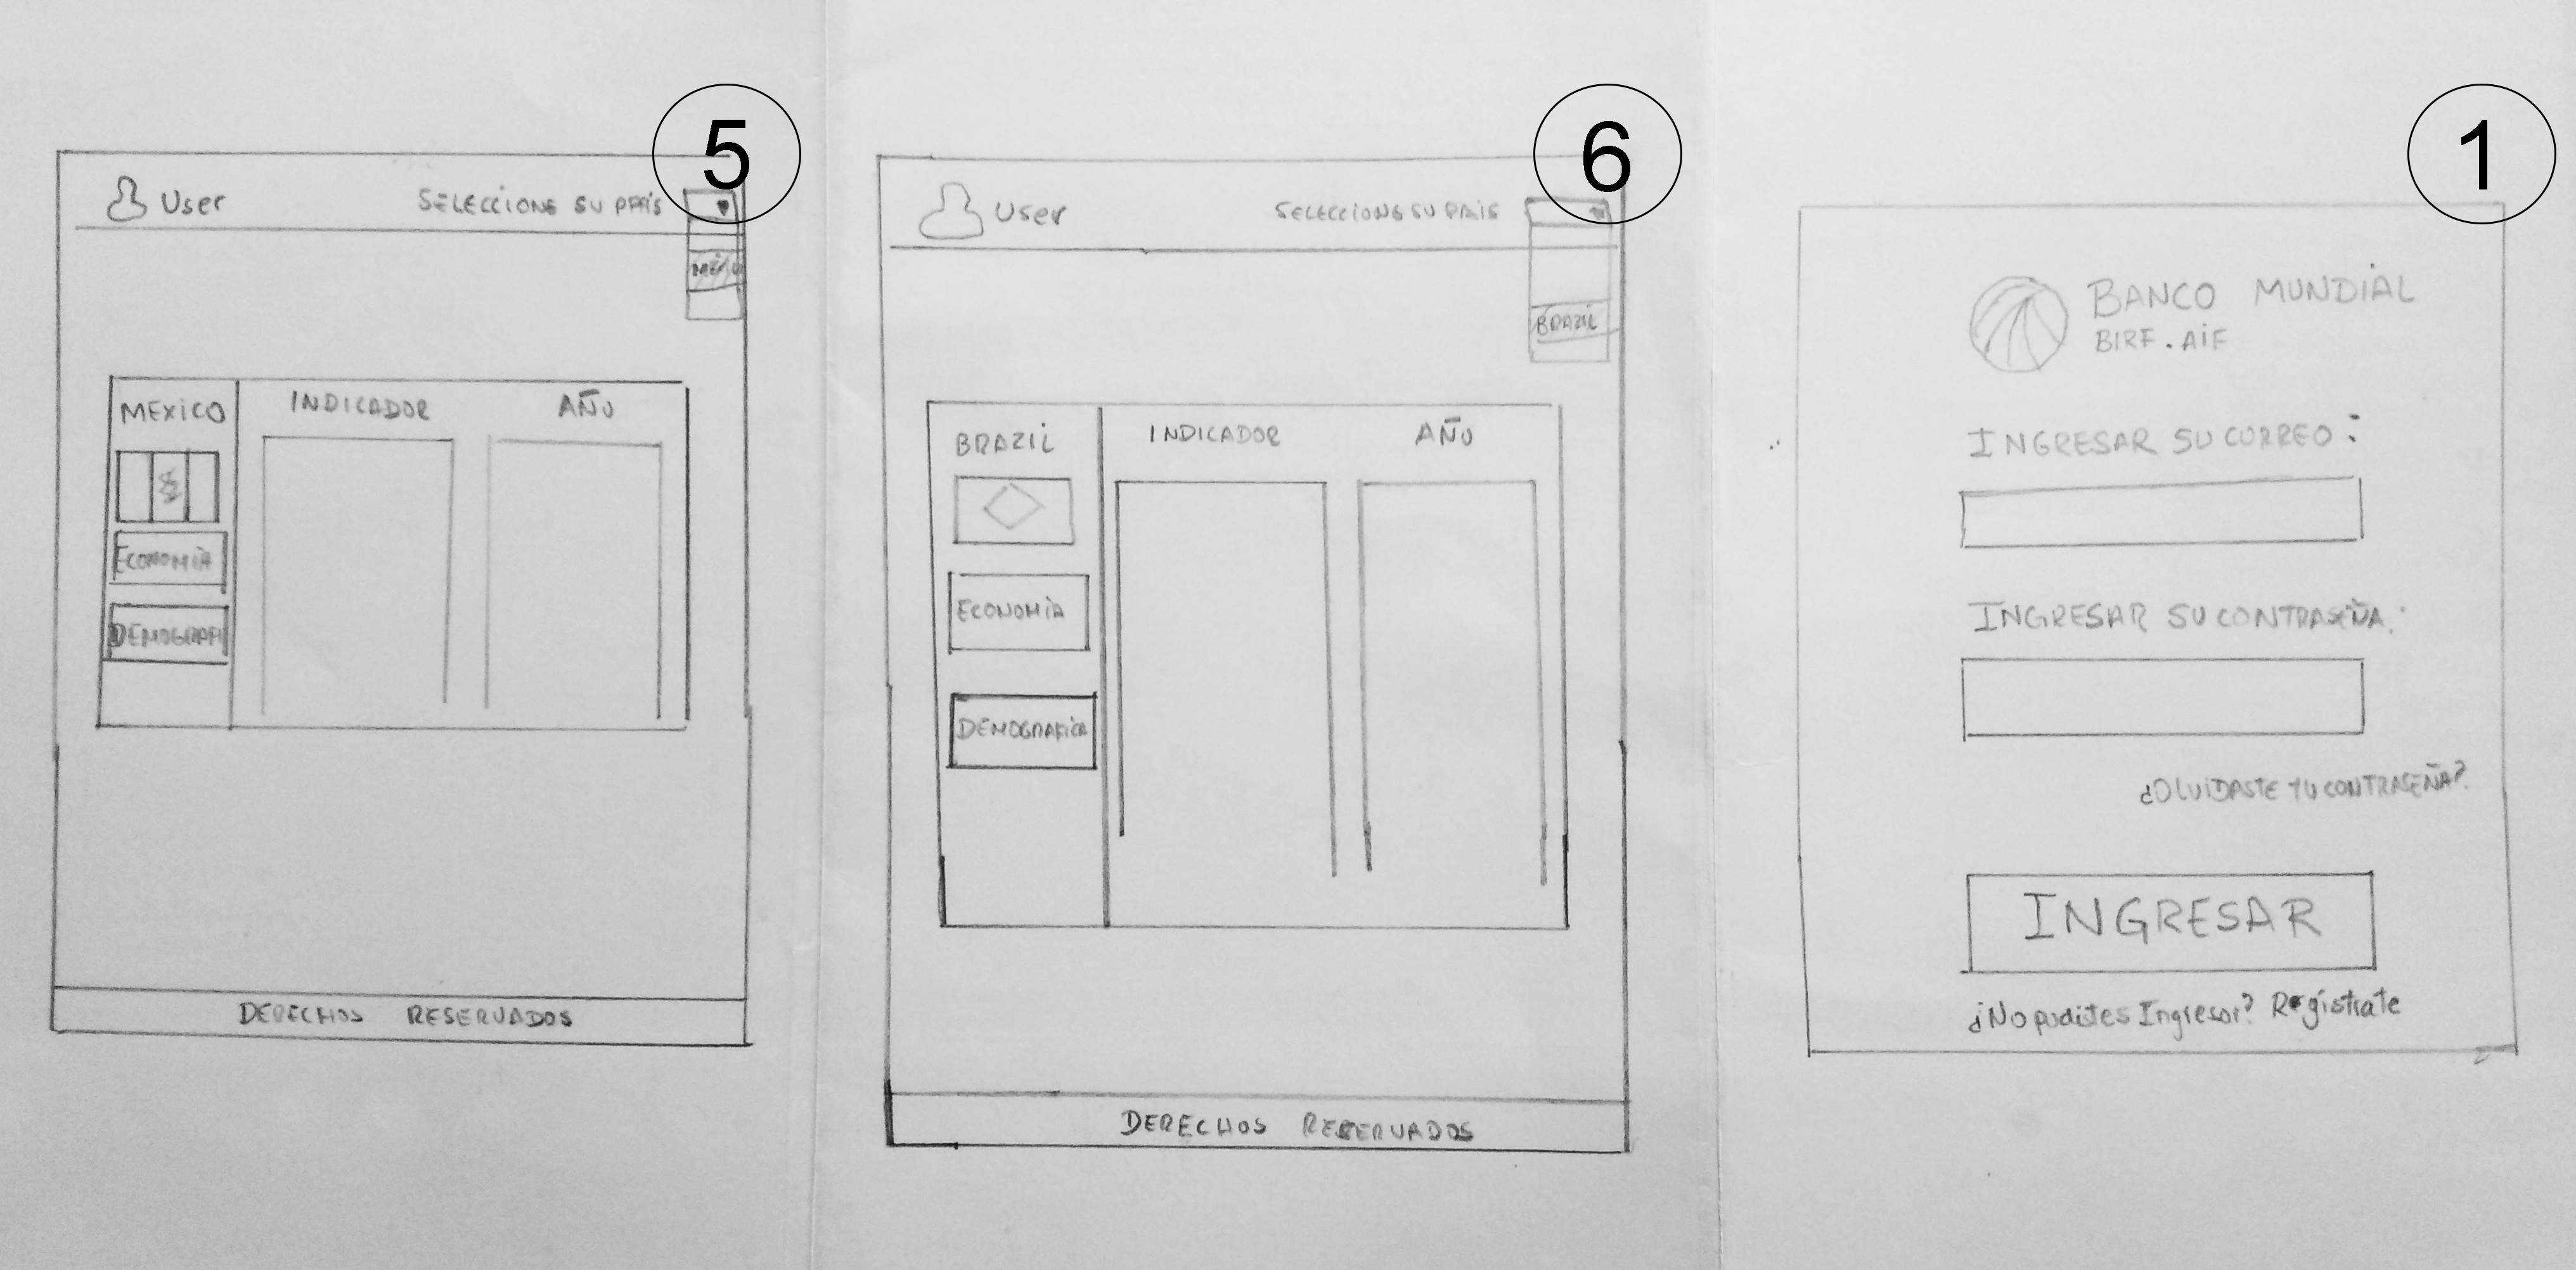 5
User SELECCIONE SU PAIS
MÉXICO
MEXICO INDICADOR AÑO
ECONOMIA
DEMOGRAFI
DERECHOS RESERVADOS
6
User SELECCIONE SU PAIS
BRAZIL
BRAZIL INDICADOR AÑO
ECONOMIA
DEMOGRAFICA
DERECHOS RESERVADOS
1
BANCO MUNDIAL
BIRF.AIF
INGRESAR SU CORREO:
INGRESAR SU CONTRASEÑA:
¿OLVIDASTE TU CONTRASEÑA?
INGRESAR
¿No pudistes Ingresar? Regístrate